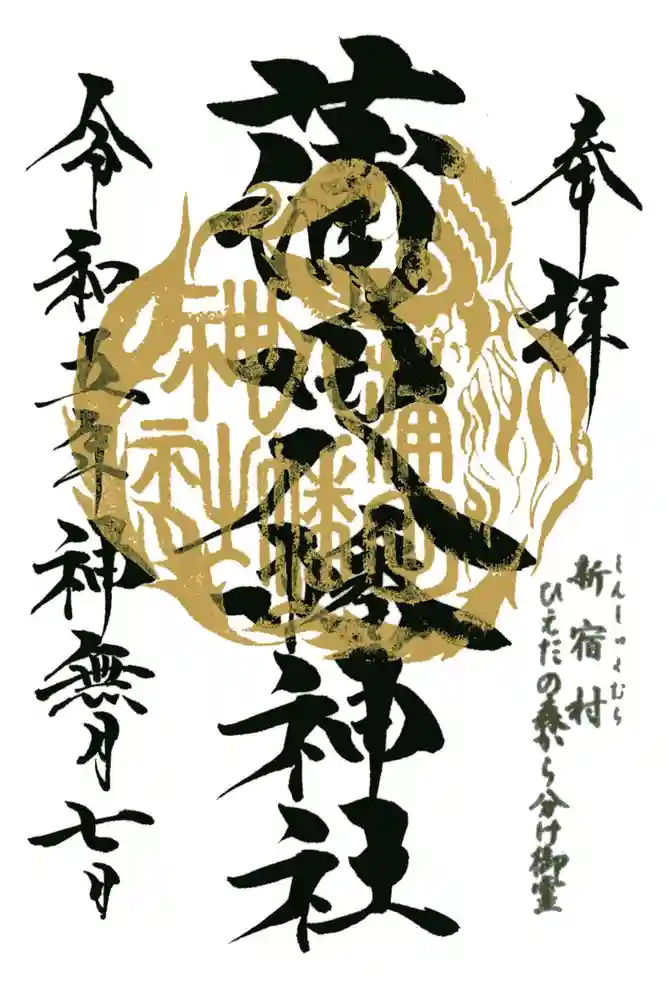 奉拝
しんしゅくむら
新宿村
ひえだの森から分け御霊
蒲田八幡神社
蒲田
八幡
神社
令和五年神無月七日